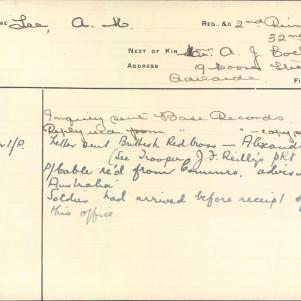 ME Lee, A. H. REG. &C 2nd Rei
32nd
NEXT OF KIN A J
ADDRESS 19
Adelaide
Inquiry sent Base Records.
Reply rec'd from " -copy s
Letter sent British Red Cross - Alexand
(See Trooper J. F. Reilly's pkt
P/Cable rec'd from Commrs. advis
Australia
Soldier had arrived before receipt of
this office